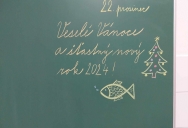 22 prosinec
Veselé Vánoce
a šťastný nový
rok 2024!